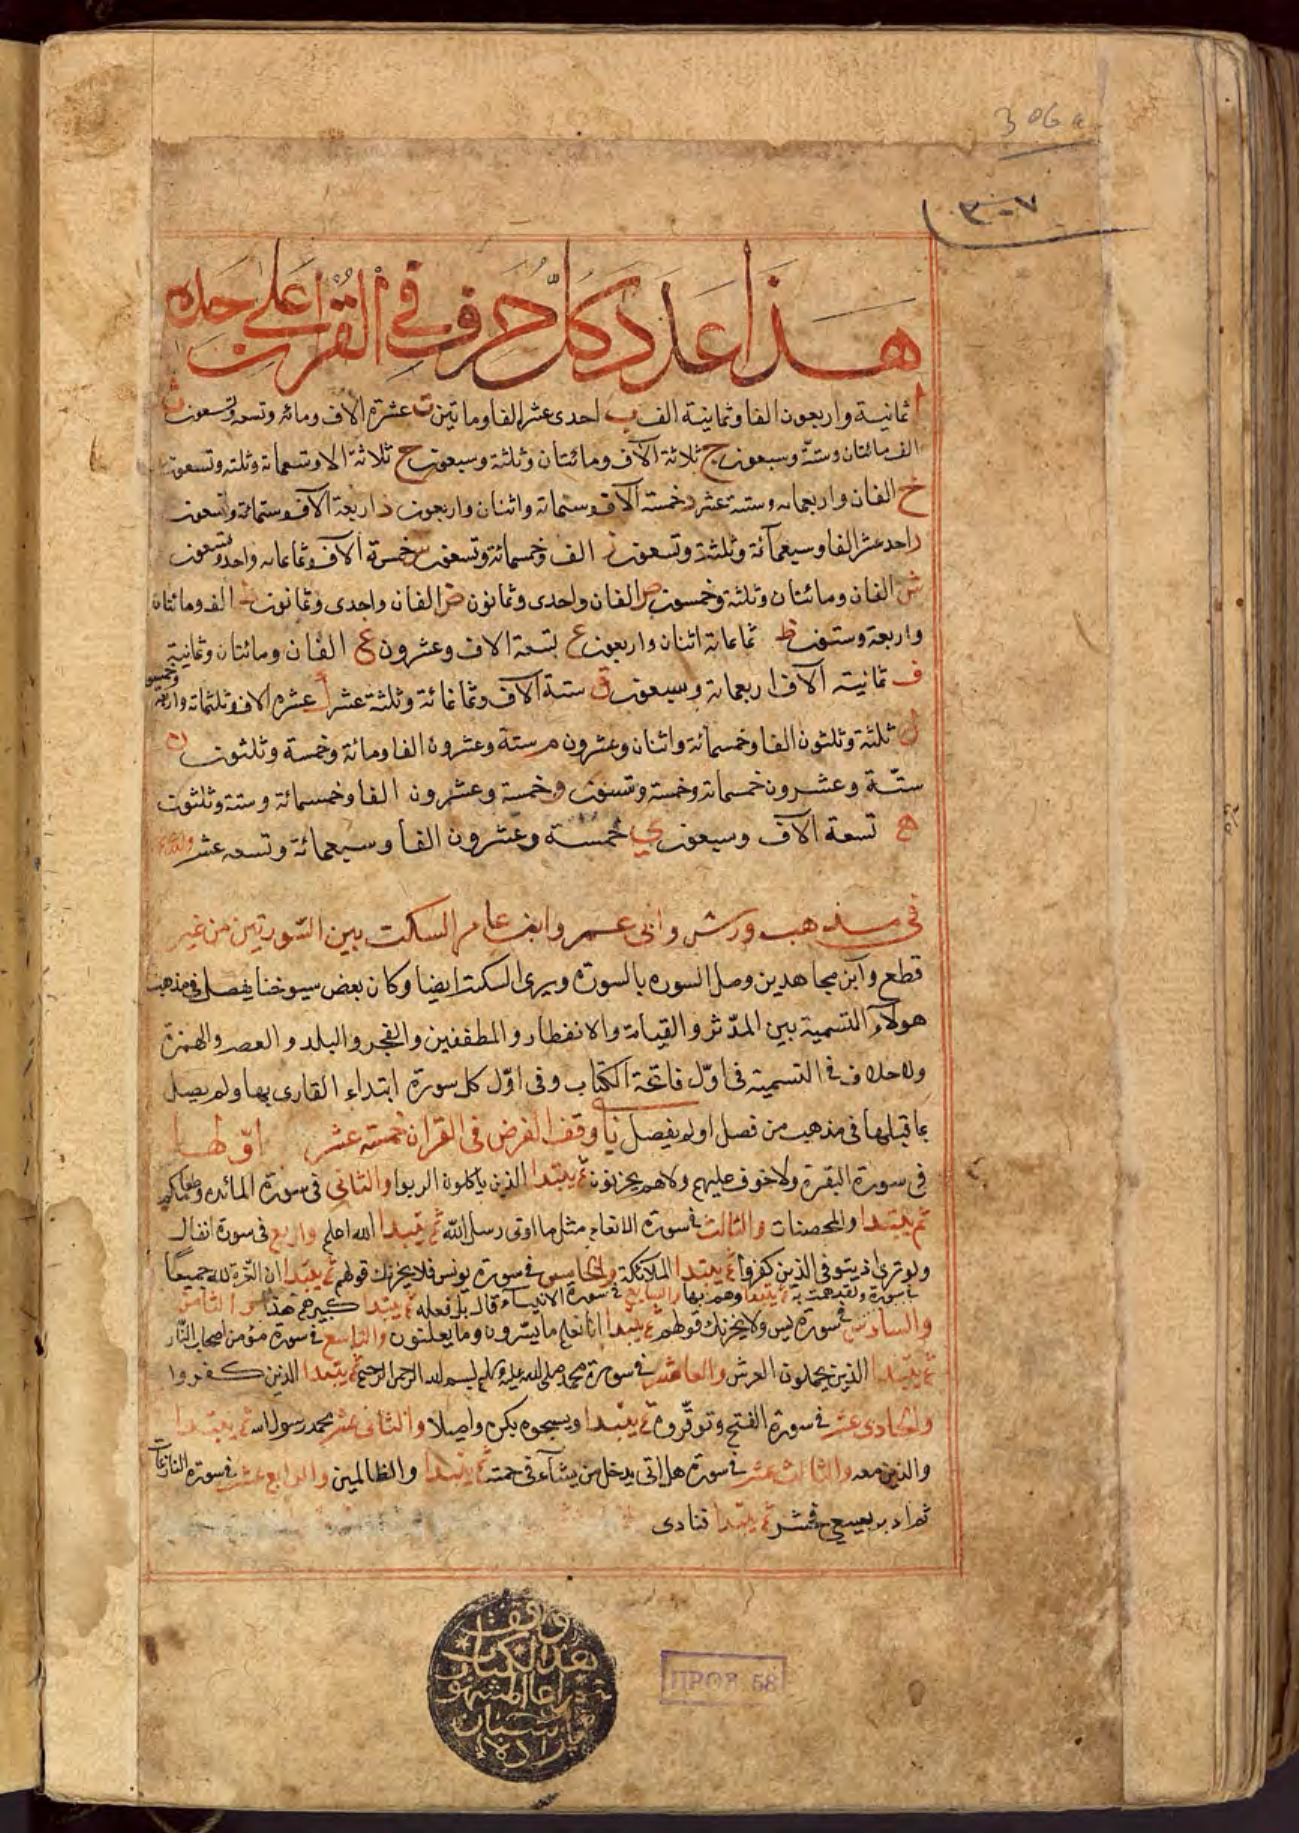 306a
٣٠٧
هذا عدد كل حرف في القران على حده
ا ثمانية واربعون الفا وثمانية الف ب احدى عشر الفا وماتين ت عشرة الاف ومائه وتسعه وتسعون ث
الف مائتان وستة وسبعون ج ثلاثة الآف ومائتان وثلثة وسبعون ح ثلاثة الاف وتسعمائة وثلثه وتسعون
خ الفان واربعمائه وستة عشر د خمسة آلاف وستمائة واثنان واربعون ذ اربعة آلاف وستمائة وتسعون
ر احد عشر الفا وسبعمآئة وثلثة وتسعون ز الف وخمسمائة وتسعون س خمسة آلاف وثماعائه واحد وتسعون
ش الفان ومائتان وثلثة وخمسون ص الفان واحدى وثمانون ض الفان واحدى وثمانون ط الف ومائتان
واربعة وستون ظ ثماعائة اثنان واربعون ع تسعة الاف وعشرون غ الفان ومائتان وثمانية
ف ثمانية آلاف اربعمائة وسبعون ق ستة آلاف وثماغائة وثلثة عشر ك عشرة الاف وثلثمائة واربعة
وخمسون
ل ثلثة وثلثون الفا وخمسمائة واثنان وعشرون م ستة وعشرون الفا ومائة وخمسة وثلثون ن
ستّة وعشرون خمسمائة وخمسة وستون و خمسة وعشرون الفا وخمسمائة وستة وثلثون
ه تسعة آلاف وسبعون ي خمسة وعشرون الفا وسبعمائة وتسعه عشر
في مذهب ورش وابى عمر وابن عامر السكت بين السّورتين من غير
قطع وآبن مجاهد ين وصل السوره بالسورة ويرى السكت ايضا وكان بعض سيوخنا يفصل فى مذهب
هولآء التسمية بين المدّثر والقيامة والانفطار والمطففين والفجر والبلد والعصر والهمزة
ولا خلاف في التسمية فى اوّل فاتحة الكتاب وفى اوّل كل سورة ابتداء القارى بها ولم يصل
بما قبلها فى مذهب من فصل او لم يفصل وقف الفرض فى القران خمسته عشر اوّلها
في سورة البقرة ولا خوف عليهم ولا هم يحزنون ثم يبتدا الذين ياكلون الربوا والثانى فى سورة المائده وطعامكم
ثم يبتدا والمحصنات والثالث فى سورة الانعام مثل ما اوتى رسل الله ثم يبتدا الله اعلم والرابع فى سورة انفال
ولو ترى اذ يتوفى الذين كفروا ثم يبتدا الملائكة والخامس فى سورة يونس فلا يحزنك قولهم ثم يبتدا ان العزة لله جميعا
في سورة ولقد همت به ثم يبتدا وهم بها والسابع فى سورة الانبياء قال بل فعله ثم يبتدا كبيرهم هذا والثامن
والسادس فى سورة يس ولا يحزنك قولهم ثم يبتدا انا نعلم ما يسرون وما يعلنون والتاسع فى سورة مؤمن اصحاب النّار
ثم يبتدا الذين يحملون العرش والعاشر فى سورة محمد صلى الله عليه وسلم بسم الله الرحمن الرحيم ثم يبتدا الذين كفروا
والحادى عشر فى سورة الفتح وتوقروه ثم يبتدا ويسبحوه بكره واصيلا والثانى عشر محمد رسول الله ثم يبتدا
والذين معه والثالث عشر فى سورة هل اتى يدخل من يشآء فى رحمته ثم يبتدا والظالمين والرابع عشر فى سورة النازعات
ثم ادبر يسعى فحشر ثم يبتدا فنادى
وقف
هذا الكتاب
المشهور
زاده
ПРОВ. 58